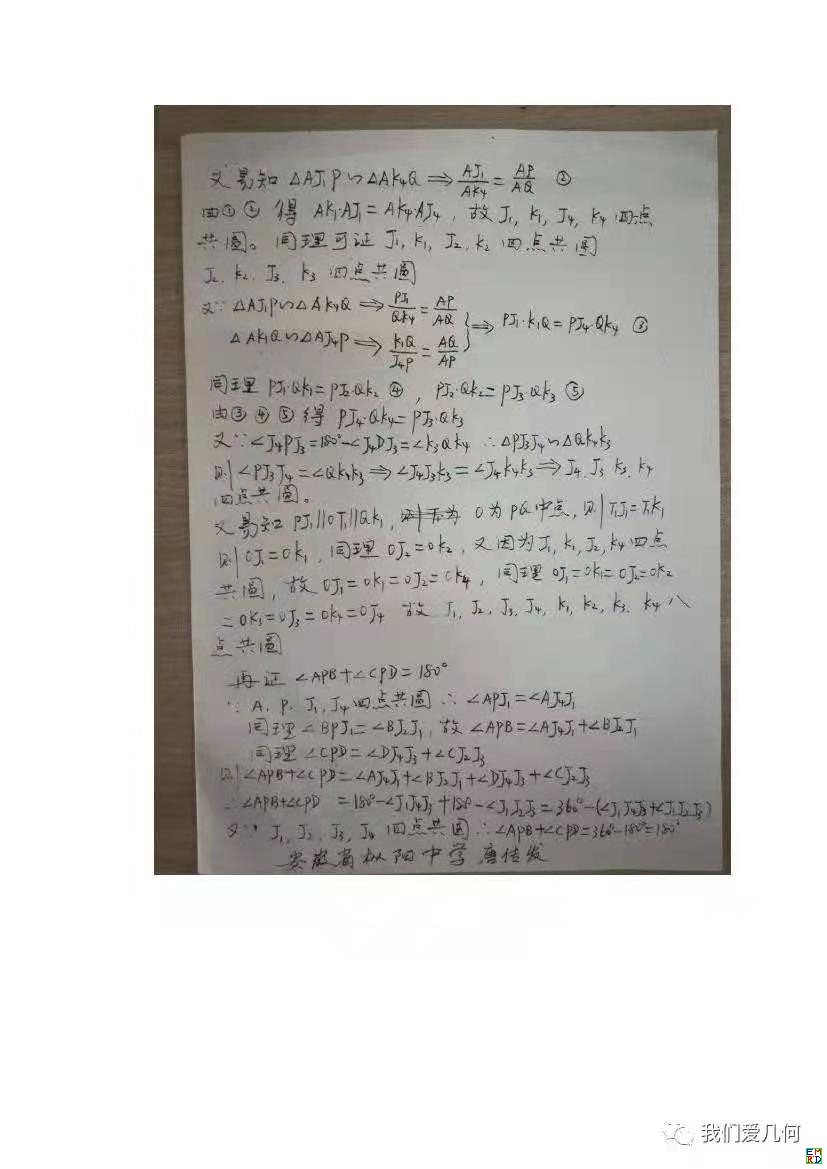 又易知 △AJ₁P∽△AK₄Q ⟹ AJ₁/AK₄ = AP/AQ ②
由①② 得 AK₁·AJ₁=AK₄·AJ₄, 故 J₁, K₁, J₄, K₄ 四点
共圆。同理可证 J₁, K₁, J₂, K₂ 四点共圆
J₂. K₂. J₃. K₃ 四点共圆
又∵ △AJ₁P∽△AK₄Q ⟹ PJ₁/QK₄ = AP/AQ
△AK₁Q∽△AJ₄P ⟹ K₁Q/J₄P = AQ/AP } ⟹ PJ₁·K₁Q=PJ₄·QK₄ ③
同理 PJ₁·QK₁=PJ₂·QK₂ ④, PJ₂·QK₂=PJ₃·QK₃ ⑤
由③④⑤得 PJ₄·QK₄=PJ₃·QK₃
又∵∠J₄PJ₃=180°-∠J₄DJ₃=∠K₃QK₄ ∴△PJ₃J₄∽△QK₄K₃
则∠PJ₃J₄=∠QK₄K₃ ⟹ ∠J₄J₃K₃=∠J₄K₄K₃ ⟹ J₄. J₃. K₃. K₄
四点共圆。
又易知 PJ₁∥OT₁∥QK₁, O为PQ中点, 则T₁J₁=T₁K₁
则OJ₁=OK₁, 同理 OJ₂=OK₂, 又因为J₁, K₁, J₂, K₄四点
共圆, 故OJ₁=OK₁=OJ₂=OK₄, 同理 OJ₁=OK₁=OJ₂=OK₂
=OK₃=OJ₃=OK₄=OJ₄ 故 J₁, J₂, J₃, J₄, K₁, K₂, K₃. K₄ 八
点共圆
再证 ∠APB+∠CPD=180°
∵ A. P. J₁, J₄ 四点共圆 ∴ ∠APJ₁=∠AJ₄J₁
同理∠BPJ₁=∠BJ₂J₁, 故 ∠APB=∠AJ₄J₁+∠BJ₂J₁
同理 ∠CPD=∠DJ₄J₃+∠CJ₂J₃
则∠APB+∠CPD=∠AJ₄J₁+∠BJ₂J₁+∠DJ₄J₃+∠CJ₂J₃
∴∠APB+∠CPD =180°-∠J₁J₄J₃+180°-∠J₁J₂J₃=360°-(∠J₁J₄J₃+∠J₁J₂J₃)
又∵ J₁, J₂, J₃, J₄ 四点共圆 ∴∠APB+∠CPD=360°-180°=180°
安徽省枞阳中学 唐传发
我们爱几何